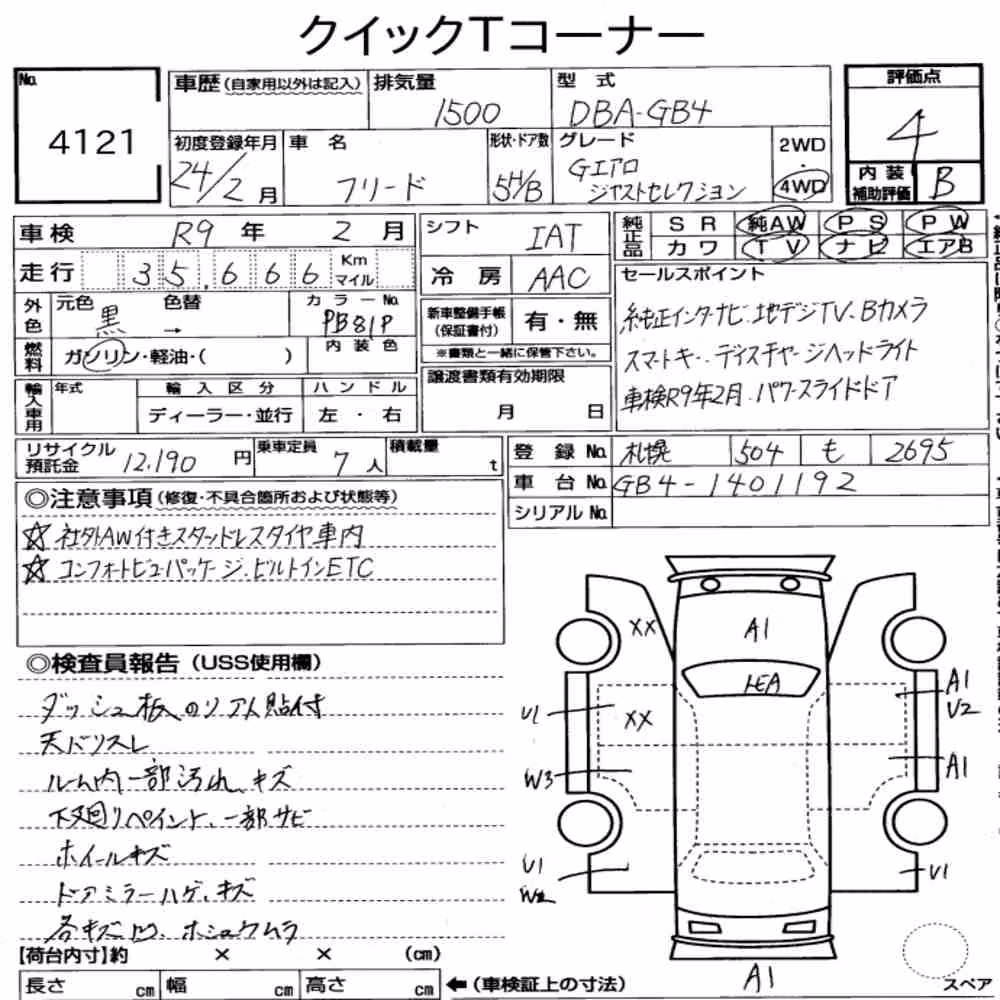 クイックTコーナー
No. 4121
車歴(自家用以外は記入) 排気量 1500 型式 DBA-GB4
評価点 4
初度登録年月 24/2月 車名 フリード 形状・ドア数 5H/B グレード Gエアロ ジャストセレクション 2WD・4WD
内装補助評価 B
車検 R9年 2月 シフト IAT 純正品 SR 純AW PS PW
カワ TV ナビ エアB
走行 35,666 Km マイル 冷房 AAC
セールスポイント
外色 元色 黒 色替 → カラーNo. PB81P
新車整備手帳(保証書付) 有・無
※書類と一緒に保管下さい。
純正インターナビ.地デジTV.Bカメラ
スマートキー.ディスチャージヘッドライト
車検R9年2月.パワースライドドア
燃料 ガソリン・軽油・( ) 内装色
輸入車用 年式 輸入区分 ハンドル 譲渡書類有効期限
ディーラー・並行 左・右 月 日
リサイクル預託金 12,190円 乗車定員 7人 積載量 t
登録No. 札幌 504 も 2695
車台No. GB4-1401192
シリアルNo.
◎注意事項(修復・不具合箇所および状態等)
☆社外AW付きスタッドレスタイヤ車内
☆コンフォートビューパッケージ.ビルトインETC
◎検査員報告(USS使用欄)
ダッシュ板のリアト貼付
天バリスレ
ルーム内一部汚れ、キズ
下廻りペイント、一部サビ
ホイールキズ
ドアミラーハゲ、キズ
各キズ凹、ホシュウムラ
XX
A1
U1
XX
A1
U2
W3
A1
U1
W2
U1
A1
スペア
【荷台内寸】約 × × (cm)
長さ cm 幅 cm 高さ cm ←(車検証上の寸法)